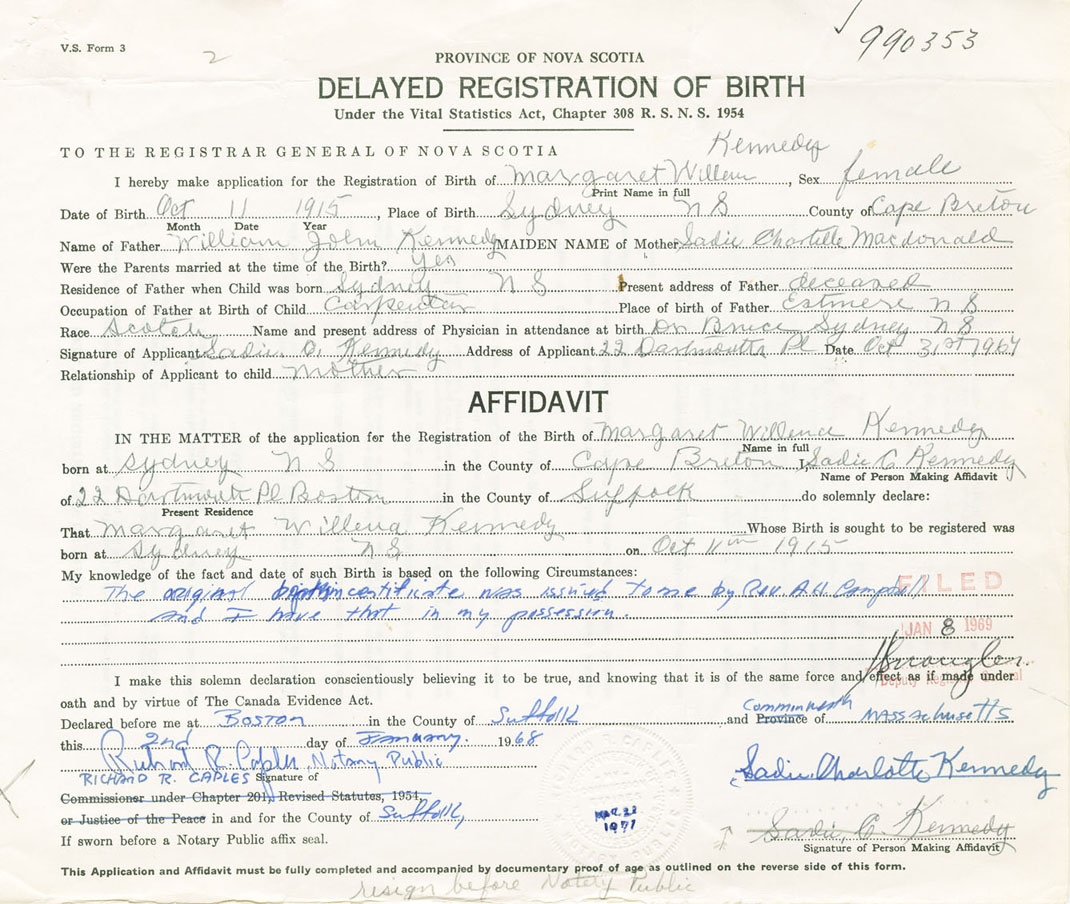 V.S. Form 3
2
990353
PROVINCE OF NOVA SCOTIA
DELAYED REGISTRATION OF BIRTH
Under the Vital Statistics Act, Chapter 308 R. S. N. S. 1954
TO THE REGISTRAR GENERAL OF NOVA SCOTIA
Kennedy
I hereby make application for the Registration of Birth of Margaret Willena, Sex female
Print Name in full
Date of Birth Oct 11 1915, Place of Birth Sydney N S County of Cape Breton
Month Date Year
Name of Father William John Kennedy MAIDEN NAME of Mother Sadie Charlotte Macdonald
Were the Parents married at the time of the Birth? Yes
Residence of Father when Child was born Sydney N S Present address of Father deceased
Occupation of Father at Birth of Child Carpenter Place of birth of Father Estmere N S
Race Scotch Name and present address of Physician in attendance at birth Dr Bruce Sydney N S
Signature of Applicant Sadie C. Kennedy Address of Applicant 22 Dartmouth Pl Date Oct 31st 1967
Relationship of Applicant to child Mother
AFFIDAVIT
IN THE MATTER of the application for the Registration of the Birth of Margaret Willena Kennedy
Name in full
born at Sydney N S in the County of Cape Breton I, Sadie C. Kennedy
Name of Person Making Affidavit
of 22 Dartmouth Pl Boston in the County of Suffolk do solemnly declare:
Present Residence
That Margaret Willena Kennedy Whose Birth is sought to be registered was
born at Sydney N S on Oct 11th 1915
My knowledge of the fact and date of such Birth is based on the following Circumstances:
The original certificate was issued to me by Rev. A.H. Campbell
and I have that in my possession.
FILED
JAN 8 1969
Deputy Registrar General
I make this solemn declaration conscientiously believing it to be true, and knowing that it is of the same force and effect as if made under
oath and by virtue of The Canada Evidence Act.
Commonwealth
Declared before me at Boston in the County of Suffolk and Province of Massachusetts
this 2nd day of January. 1968
Richard R. Caples, Notary Public
RICHARD R. CAPLES Signature of
Sadie Charlotte Kennedy
Commissioner under Chapter 201, Revised Statutes, 1954,
or Justice of the Peace in and for the County of Suffolk,
MAR 22
1971
Sadie C. Kennedy
If sworn before a Notary Public affix seal.
Signature of Person Making Affidavit
This Application and Affidavit must be fully completed and accompanied by documentary proof of age as outlined on the reverse side of this form.
resign before Notary Public